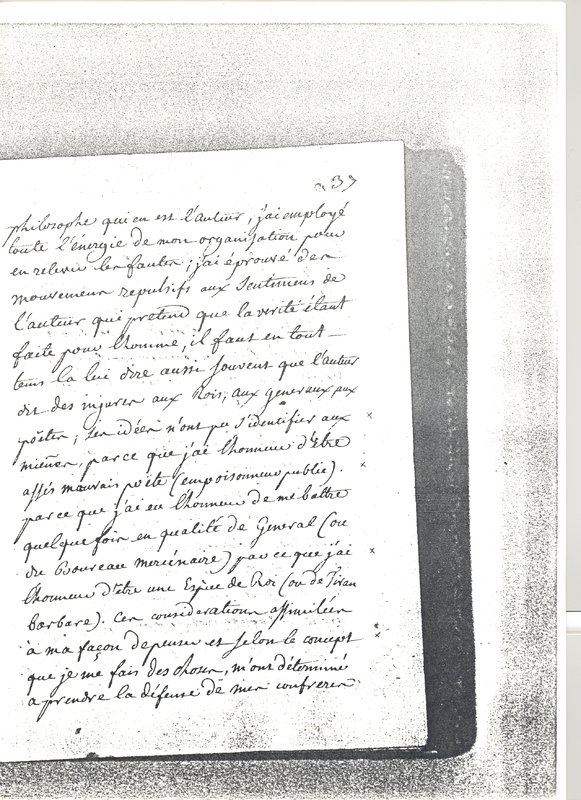 37
philosophe qui en est l'auteur, j'ai employé
toute l'énergie de mon organisation pour
en relever les fautes; j'ai éprouvé des
mouvemens repulsifs aux sentimens de
l'auteur qui pretend que la verité étant
faite pour l'homme, il faut en tout
tems la lui dire aussi souvent que l'auteur
dit des injures aux Rois, aux generaux aux
pöetes; ses idées n'ont pu s'identifier aux
miênes, parce que j'ai l'honneur d'être
assés mauvais poëte (empoisonneur publie).
parce que j'ai eu l'honneur de me battre
quelque fois en qualité de General (ou
du Boureau mercénaire) parce que j'ai
l'honneur d'être une Espèce de Roi (ou de Tiran
Barbare). Ces considerations assimilées
à ma façon de penser et selon le concept
que je me fais des choses, m'ont déterminé
a prendre la défense de mes confreres